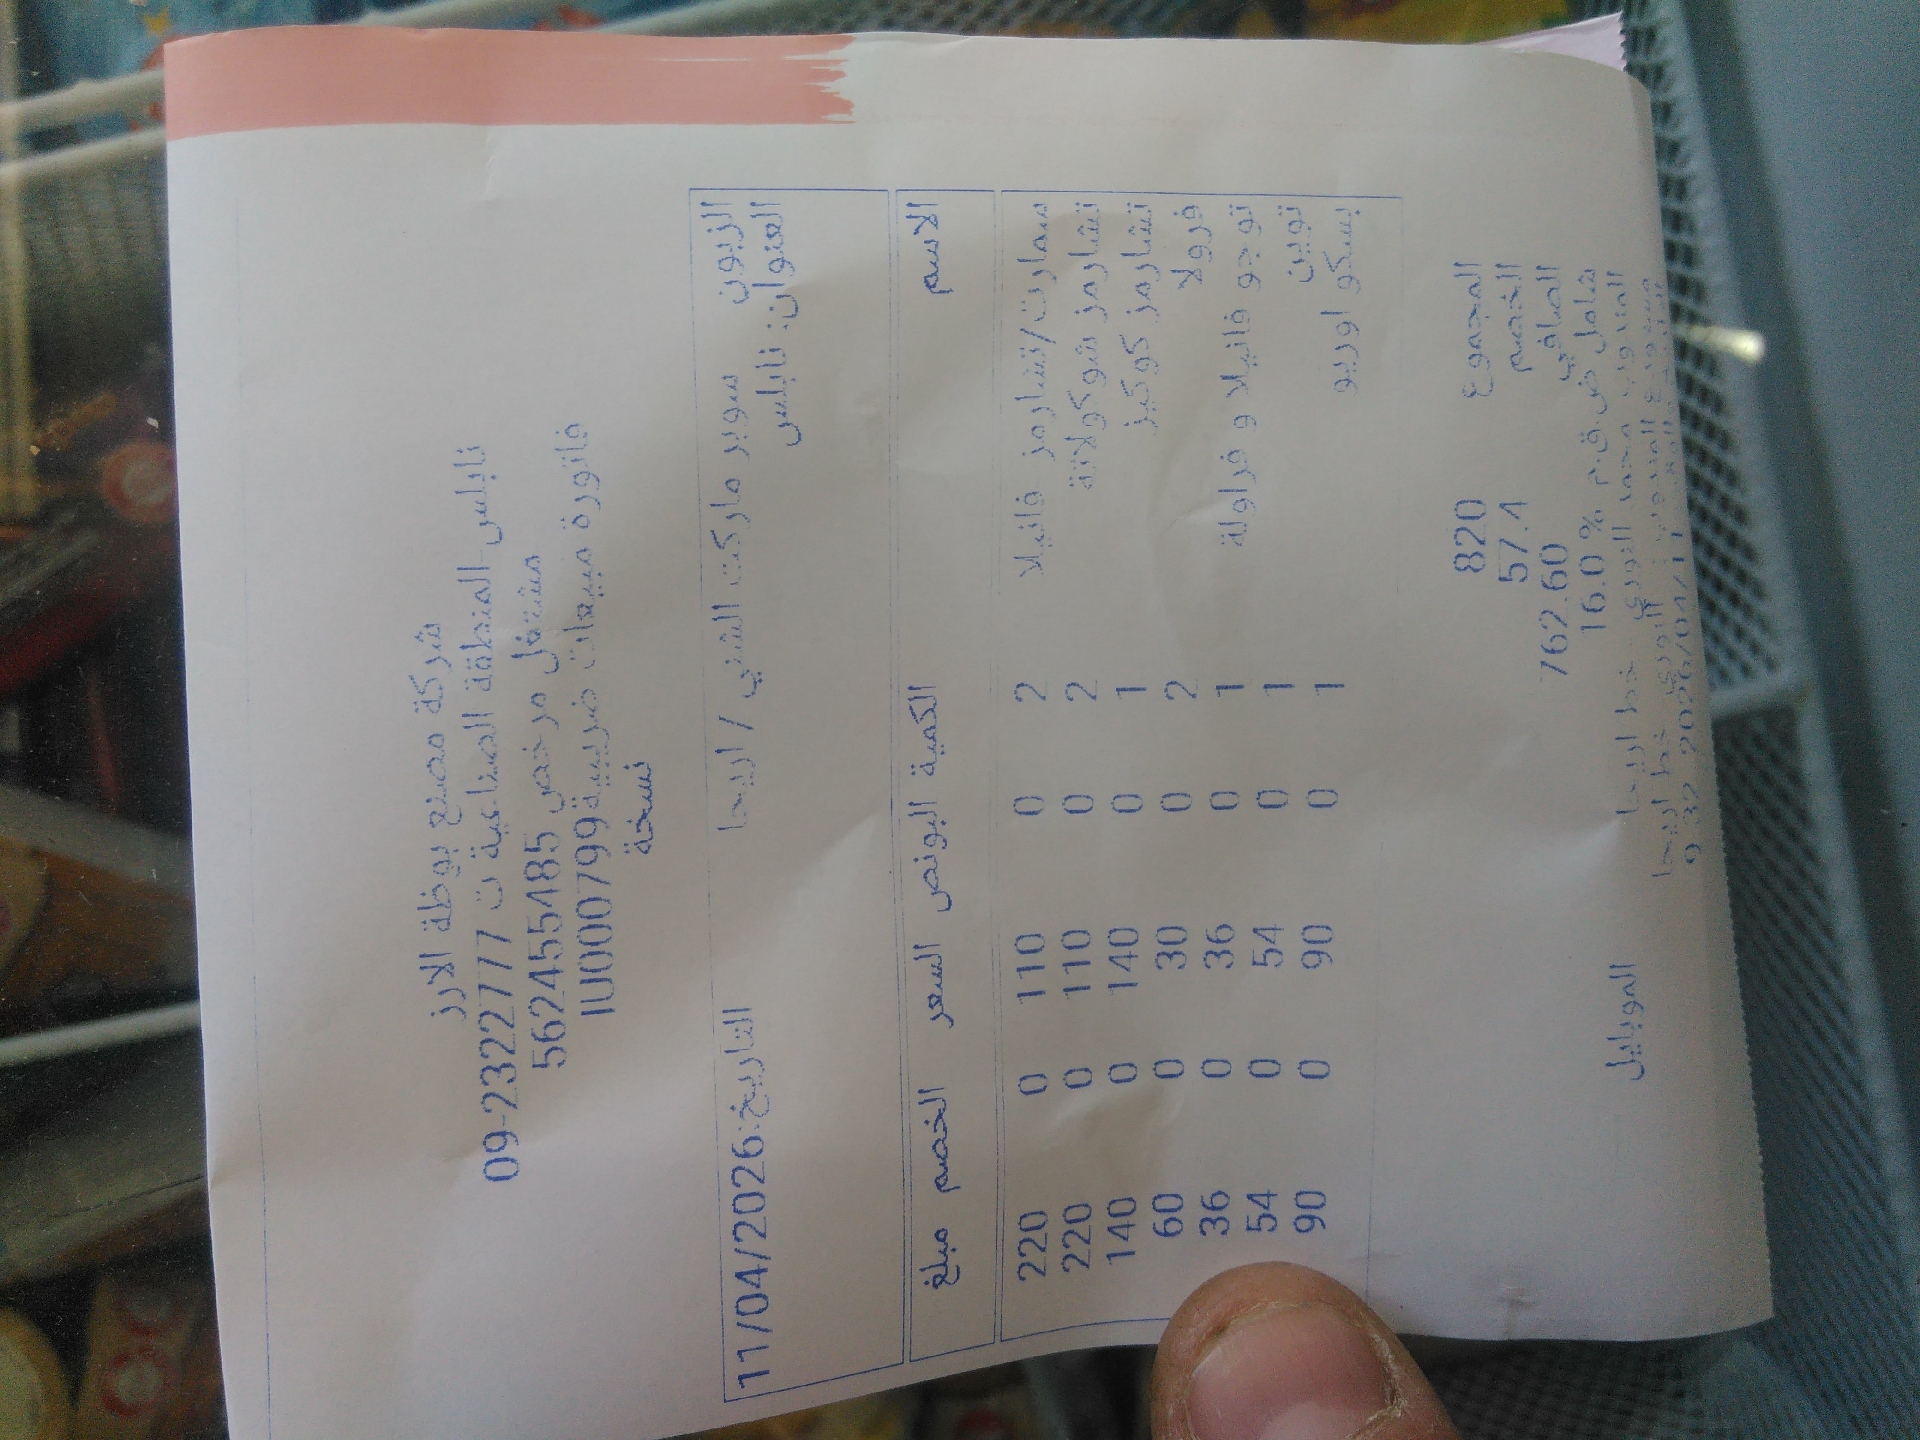 شركة مصنع بوظة الارز
نابلس-المنطقة الصناعية ت 09-2322777
مشتغل مرخص 562455485
فاتورة مبيعات ضريبية IU000799
نسخة
الزبون سوبر ماركت الشني / اريحا التاريخ:11/04/2026
العنوان: نابلس
الاسم الكمية البونص السعر الخصم مبلغ
سمارت/تشارمز فانيلا 2 0 110 0 220
تشارمز شوكولاتة 2 0 110 0 220
تشارمز كوكيز 1 0 140 0 140
فرولا 2 0 30 0 60
توجو فانيلا و فراولة 1 0 36 0 36
توين 1 0 54 0 54
بسكو اوريو 1 0 90 0 90
المجموع 820
الخصم 57.4
الصافي 762.60
شامل ض.ق.م % 16.0
المندوب محمد النوري خط اريحا الموبايل
مستودع المندوب النوري خط اريحا
9:32 2026/04/11